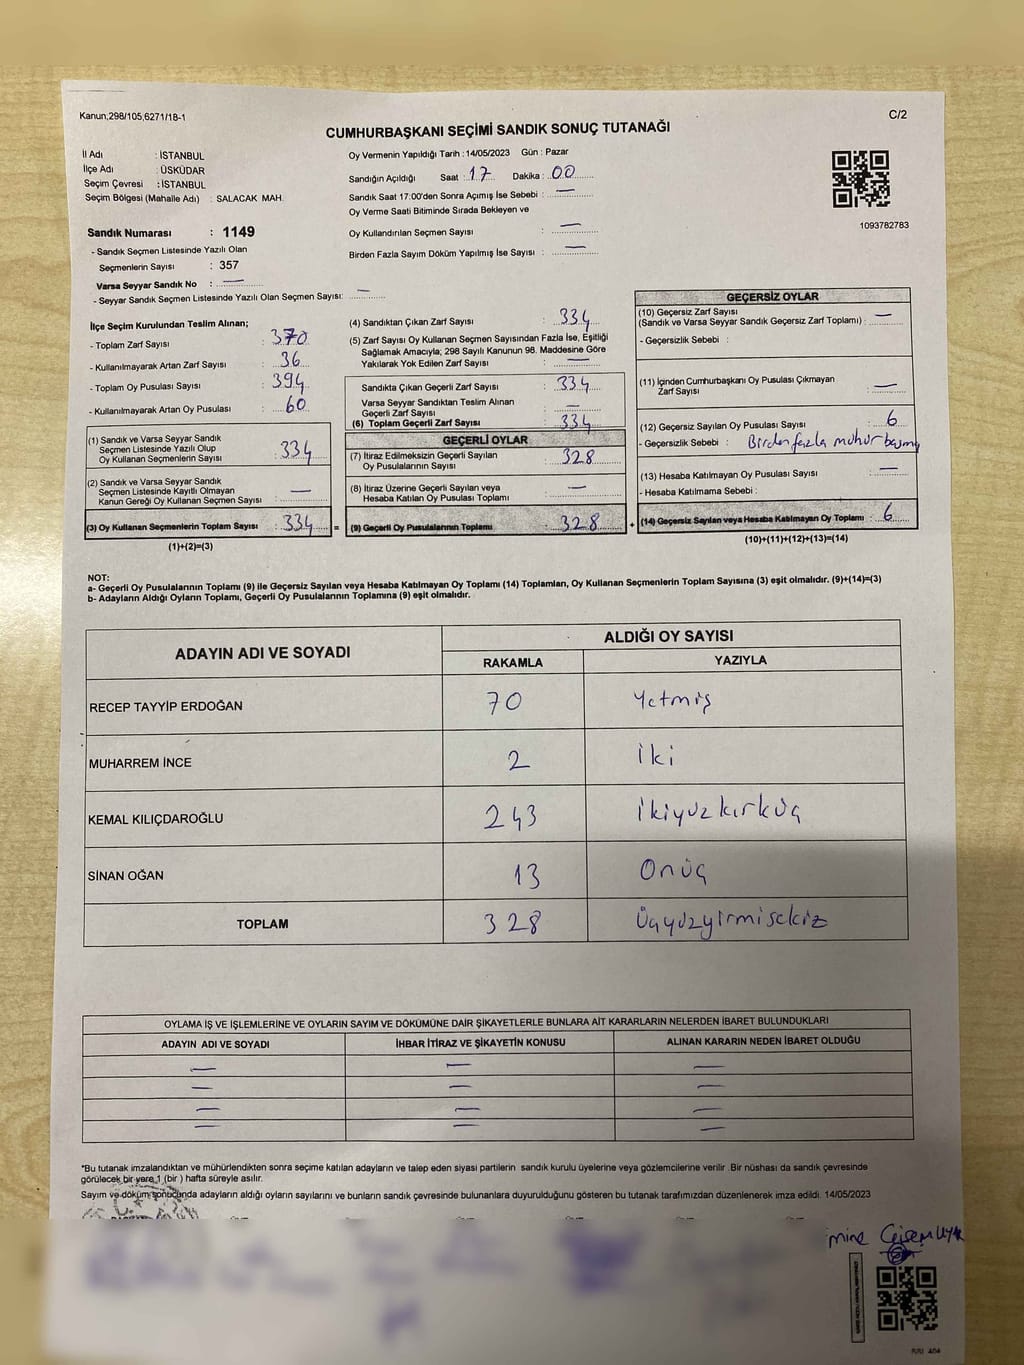 Kanun,298/105,6271/18-1
C/2
CUMHURBAŞKANI SEÇİMİ SANDIK SONUÇ TUTANAĞI
İl Adı : İSTANBUL
İlçe Adı : ÜSKÜDAR
Seçim Çevresi : İSTANBUL
Seçim Bölgesi (Mahalle Adı) : SALACAK MAH.
Oy Vermenin Yapıldığı Tarih : 14/05/2023 Gün : Pazar
Sandığın Açıldığı Saat : 17 Dakika : 00
Sandık Saat 17:00'den Sonra Açımış İse Sebebi : —
Oy Verme Saati Bitiminde Sırada Bekleyen ve
Oy Kullandırılan Seçmen Sayısı : —
Birden Fazla Sayım Döküm Yapılmış İse Sayısı : —
1093782783
Sandık Numarası : 1149
- Sandık Seçmen Listesinde Yazılı Olan
Seçmenlerin Sayısı : 357
Varsa Seyyar Sandık No : —
- Seyyar Sandık Seçmen Listesinde Yazılı Olan Seçmen Sayısı: —
İlçe Seçim Kurulundan Teslim Alınan;
- Toplam Zarf Sayısı : 370
- Kullanılmayarak Artan Zarf Sayısı : 36
- Toplam Oy Pusulası Sayısı : 394
- Kullanılmayarak Artan Oy Pusulası : 60
(1) Sandık ve Varsa Seyyar Sandık
Seçmen Listesinde Yazılı Olup
Oy Kullanan Seçmenlerin Sayısı : 334
(2) Sandık ve Varsa Seyyar Sandık
Seçmen Listesinde Kayıtlı Olmayan
Kanun Gereği Oy Kullanan Seçmen Sayısı : —
(3) Oy Kullanan Seçmenlerin Toplam Sayısı : 334 =
(1)+(2)=(3)
(4) Sandıktan Çıkan Zarf Sayısı : 334
(5) Zarf Sayısı Oy Kullanan Seçmen Sayısından Fazla İse, Eşitliği
Sağlamak Amacıyla; 298 Sayılı Kanunun 98. Maddesine Göre
Yakılarak Yok Edilen Zarf Sayısı : —
Sandıkta Çıkan Geçerli Zarf Sayısı : 334
Varsa Seyyar Sandıktan Teslim Alınan
Geçerli Zarf Sayısı : —
(6) Toplam Geçerli Zarf Sayısı : 334
GEÇERLİ OYLAR
(7) İtiraz Edilmeksizin Geçerli Sayılan
Oy Pusulalarının Sayısı : 328
(8) İtiraz Üzerine Geçerli Sayılan veya
Hesaba Katılan Oy Pusulası Toplamı : —
(9) Geçerli Oy Pusulalarının Toplamı : 328 +
GEÇERSİZ OYLAR
(10) Geçersiz Zarf Sayısı
(Sandık ve Varsa Seyyar Sandık Geçersiz Zarf Toplamı) : —
- Geçersizlik Sebebi :
(11) İçinden Cumhurbaşkanı Oy Pusulası Çıkmayan
Zarf Sayısı : —
(12) Geçersiz Sayılan Oy Pusulası Sayısı : 6
- Geçersizlik Sebebi : Birden fazla mühür basmış
(13) Hesaba Katılmayan Oy Pusulası Sayısı : —
- Hesaba Katılmama Sebebi :
(14) Geçersiz Sayılan veya Hesaba Katılmayan Oy Toplamı : 6
(10)+(11)+(12)+(13)=(14)
NOT:
a- Geçerli Oy Pusulalarının Toplamı (9) ile Geçersiz Sayılan veya Hesaba Katılmayan Oy Toplamı (14) Toplamları, Oy Kullanan Seçmenlerin Toplam Sayısına (3) eşit olmalıdır. (9)+(14)=(3)
b- Adayların Aldığı Oyların Toplamı, Geçerli Oy Pusulalarının Toplamına (9) eşit olmalıdır.
ADAYIN ADI VE SOYADI
ALDIĞI OY SAYISI
RAKAMLA YAZIYLA
RECEP TAYYİP ERDOĞAN 70 Yetmiş
MUHARREM İNCE 2 İki
KEMAL KILIÇDAROĞLU 243 İkiyüzkırküç
SİNAN OĞAN 13 Onüç
TOPLAM 328 Üçyüzyirmisekiz
OYLAMA İŞ VE İŞLEMLERİNE VE OYLARIN SAYIM VE DÖKÜMÜNE DAİR ŞİKAYETLERLE BUNLARA AİT KARARLARIN NELERDEN İBARET BULUNDUKLARI
ADAYIN ADI VE SOYADI İHBAR İTİRAZ VE ŞİKAYETİN KONUSU ALINAN KARARIN NEDEN İBARET OLDUĞU
— — —
— — —
— — —
— — —
*Bu tutanak imzalandıktan ve mühürlendikten sonra seçime katılan adayların ve talep eden siyasi partilerin sandık kurulu üyelerine veya gözlemcilerine verilir .Bir nüshası da sandık çevresinde
görülecek bir yere 1 (bir ) hafta süreyle asılır.
Sayım ve döküm sonucunda adayların aldığı oyların sayılarını ve bunların sandık çevresinde bulunanlara duyurulduğunu gösteren bu tutanak tarafımızdan düzenlenerek imza edildi. 14/05/2023